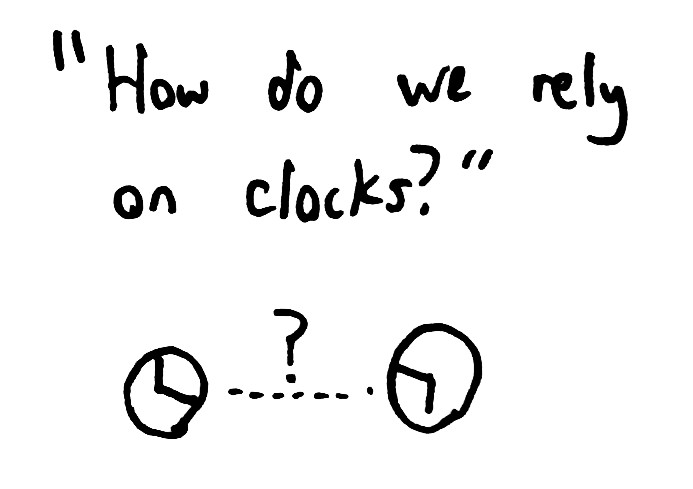 "How do we rely
on clocks?"
?